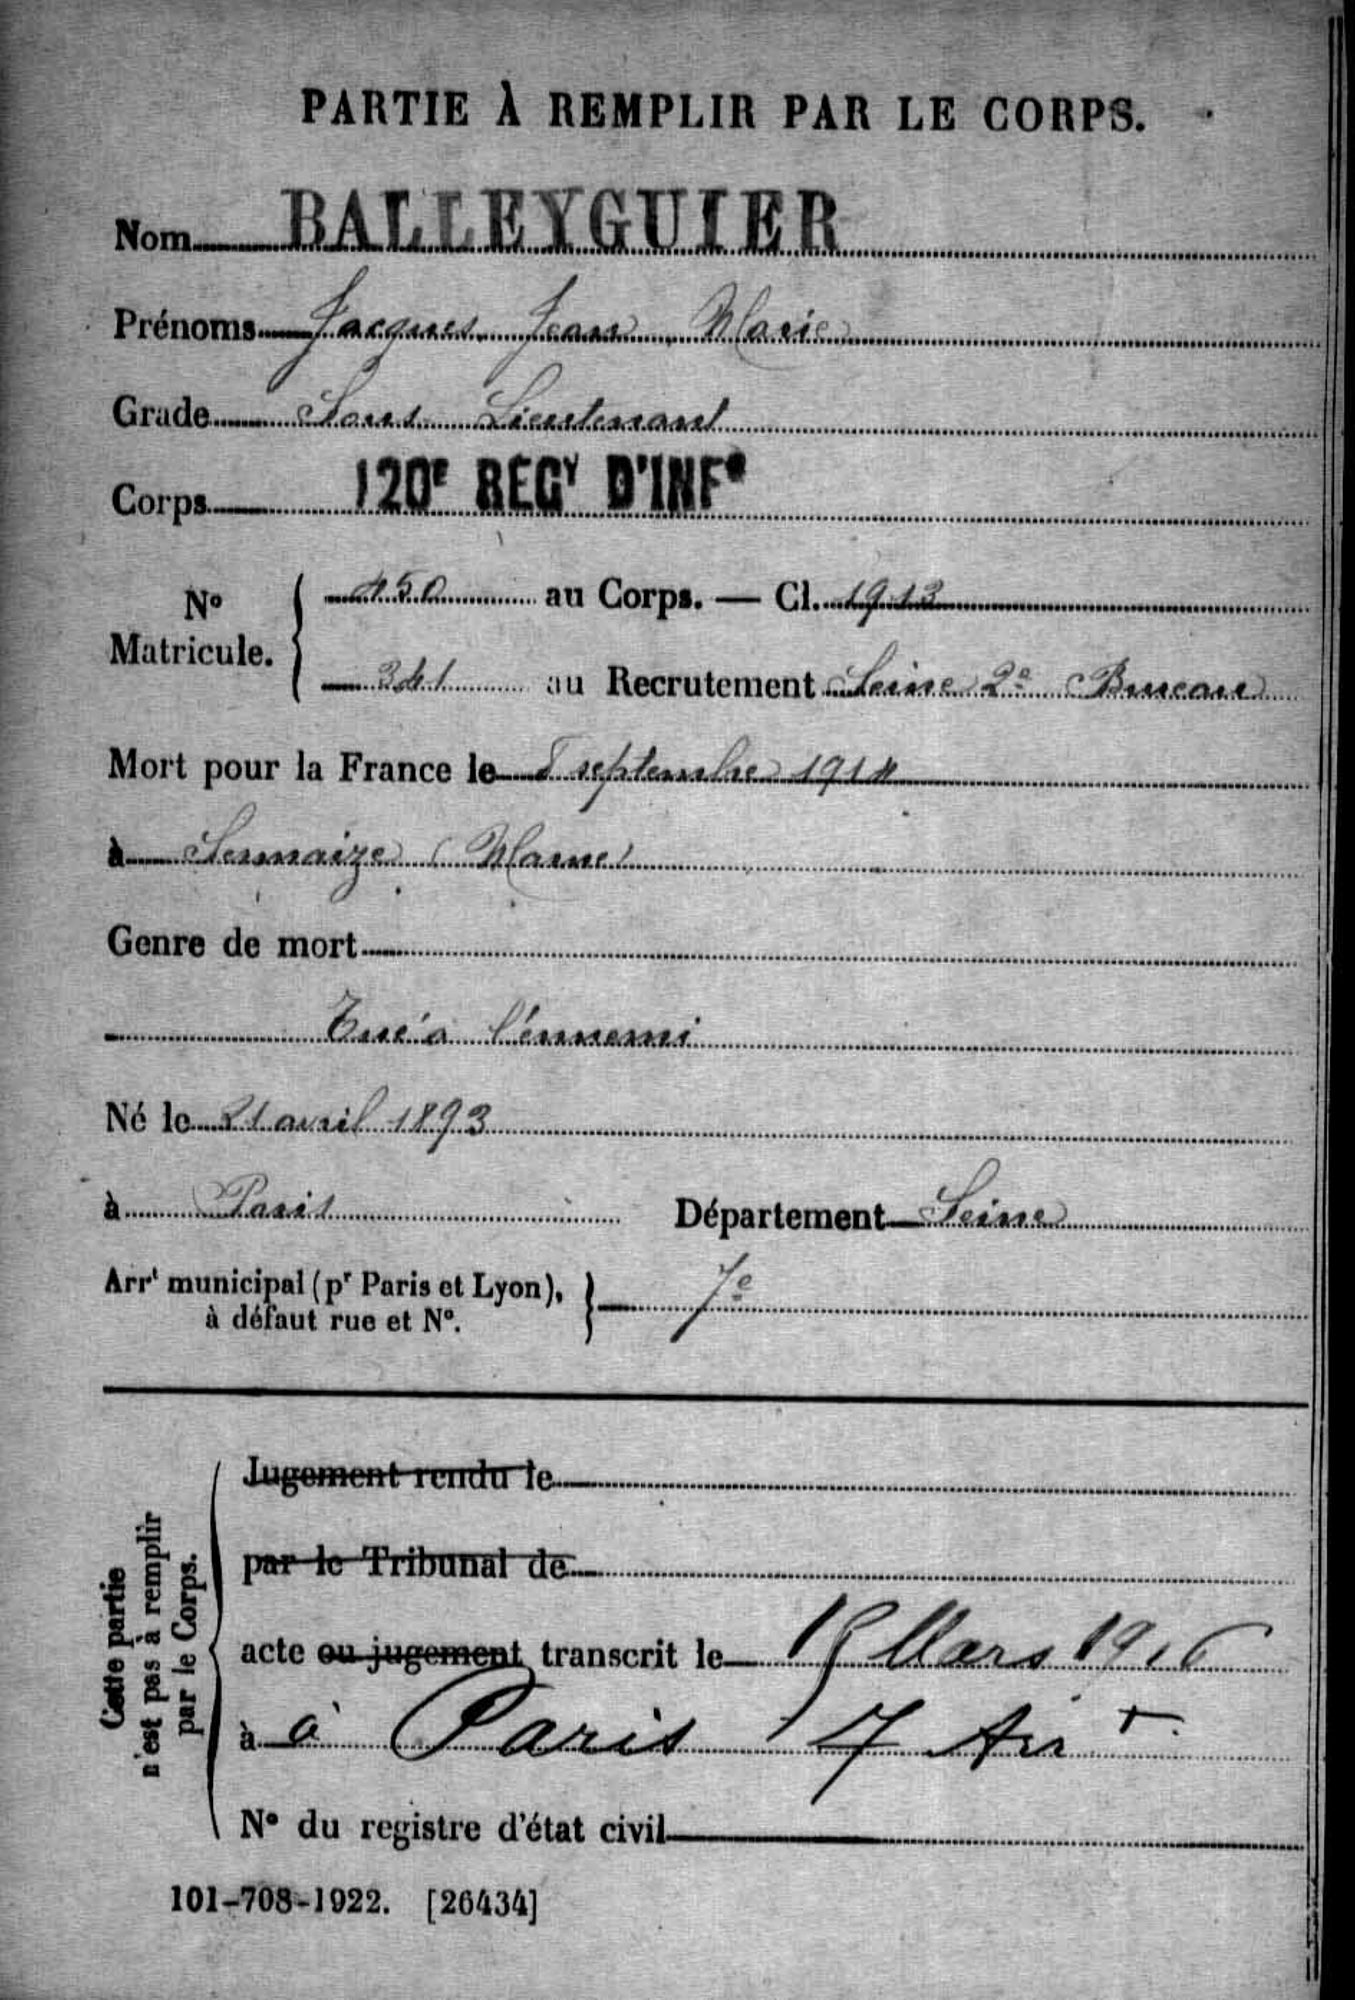 PARTIE À REMPLIR PAR LE CORPS.
Nom BALLEYGUIER
Prénoms Jacques Jean Marie
Grade Sous Lieutenant
Corps 120E REGT D'INFie
No Matricule. { 450 au Corps. — Cl. 1913
341 au Recrutement Seine 2e Bureau
Mort pour la France le 8 septembre 1914
à Sermaize (Marne)
Genre de mort
Tué à l'ennemi
Né le 21 avril 1893
à Paris Département Seine
Arrt municipal (pr Paris et Lyon), à défaut rue et No. } 7e
Cette partie n'est pas à remplir par le Corps.
Jugement rendu le
par le Tribunal de
acte ou jugement transcrit le Mars 1916
à à Paris 7 Arrt
No du registre d'état civil
101-708-1922. [26434]